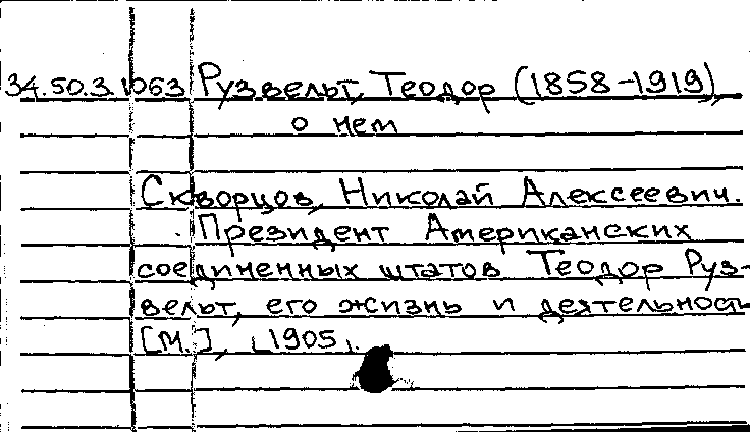 34.50.3.1063 Рузвельт, Теодор (1858-1919),
о нем
Скворцов, Николай Алексеевич.
Президент Американских
соединенных штатов Теодор Руз-
вельт, его жизнь и деятельность
[М.], [1905].